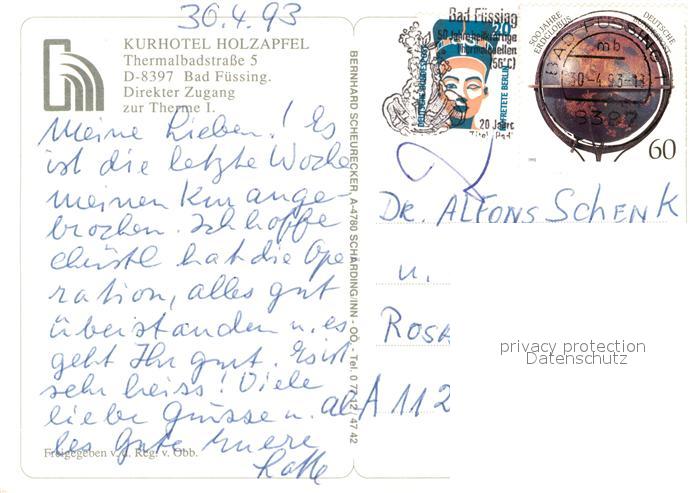 30.4.93
KURHOTEL HOLZAPFEL
Thermalbadstraße 5
D-8397 Bad Füssing.
Direkter Zugang
zur Therme I.
Meine Lieben! Es
ist die letzte Woche
meinen Kur ange-
brochen. Ich hoffe
Christl hat die Ope
ration, alles gut
überstanden u. es
geht Ihr gut. Es ist
sehr heiss! Viele
liebe Grüsse u. al
les Gute Euere
Freigegeben v. d. Reg. v. Obb.
BERNHARD SCHEURECKER, A-4780 SCHÄRDING/INN - OÖ, - Tel. 0 77 12 / 47 42
Bad Füssing
50 Jahre heilkräftige
Thermalquellen
(56°C)
20 Jahre
Titel "Bad"
DEUTSCHE BUNDESPOST
NOFRETETE BERLIN
20
500 JAHRE
ERDGLOBUS
DEUTSCHE
BAD FÜSSING 1
mb
30-4.93-18
8397
60
DR. ALFONS SCHENK
u.
ROSA
A 112
privacy protection
Datenschutz